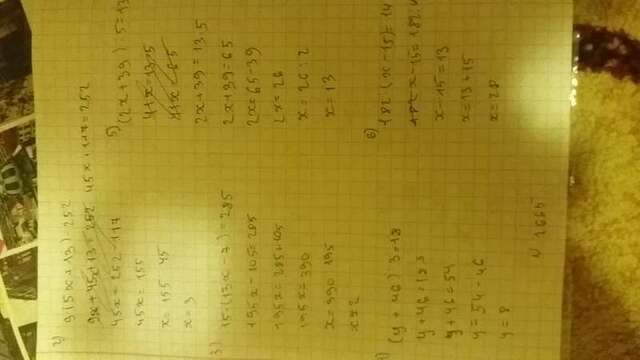 2) 9(5x+13)=252
9x+45x+13=252 45x+117=252
45x=252-117
45x=155
x=155:45
x=3
3) 15·(13x-7)=285
195x-105=285
195x=285+105
195x=390
x=390:195
x=2
(y+46):3=18
y+46=18·3
y+46=54
y=54-46
y=8
5) (2x+39):5=13
2x+39=13·5
2x+39=65
2x=65-39
2x=26
x=26:2
x=13
6) 182:(x-15)=14
x-15=13
x=13+15
x=28